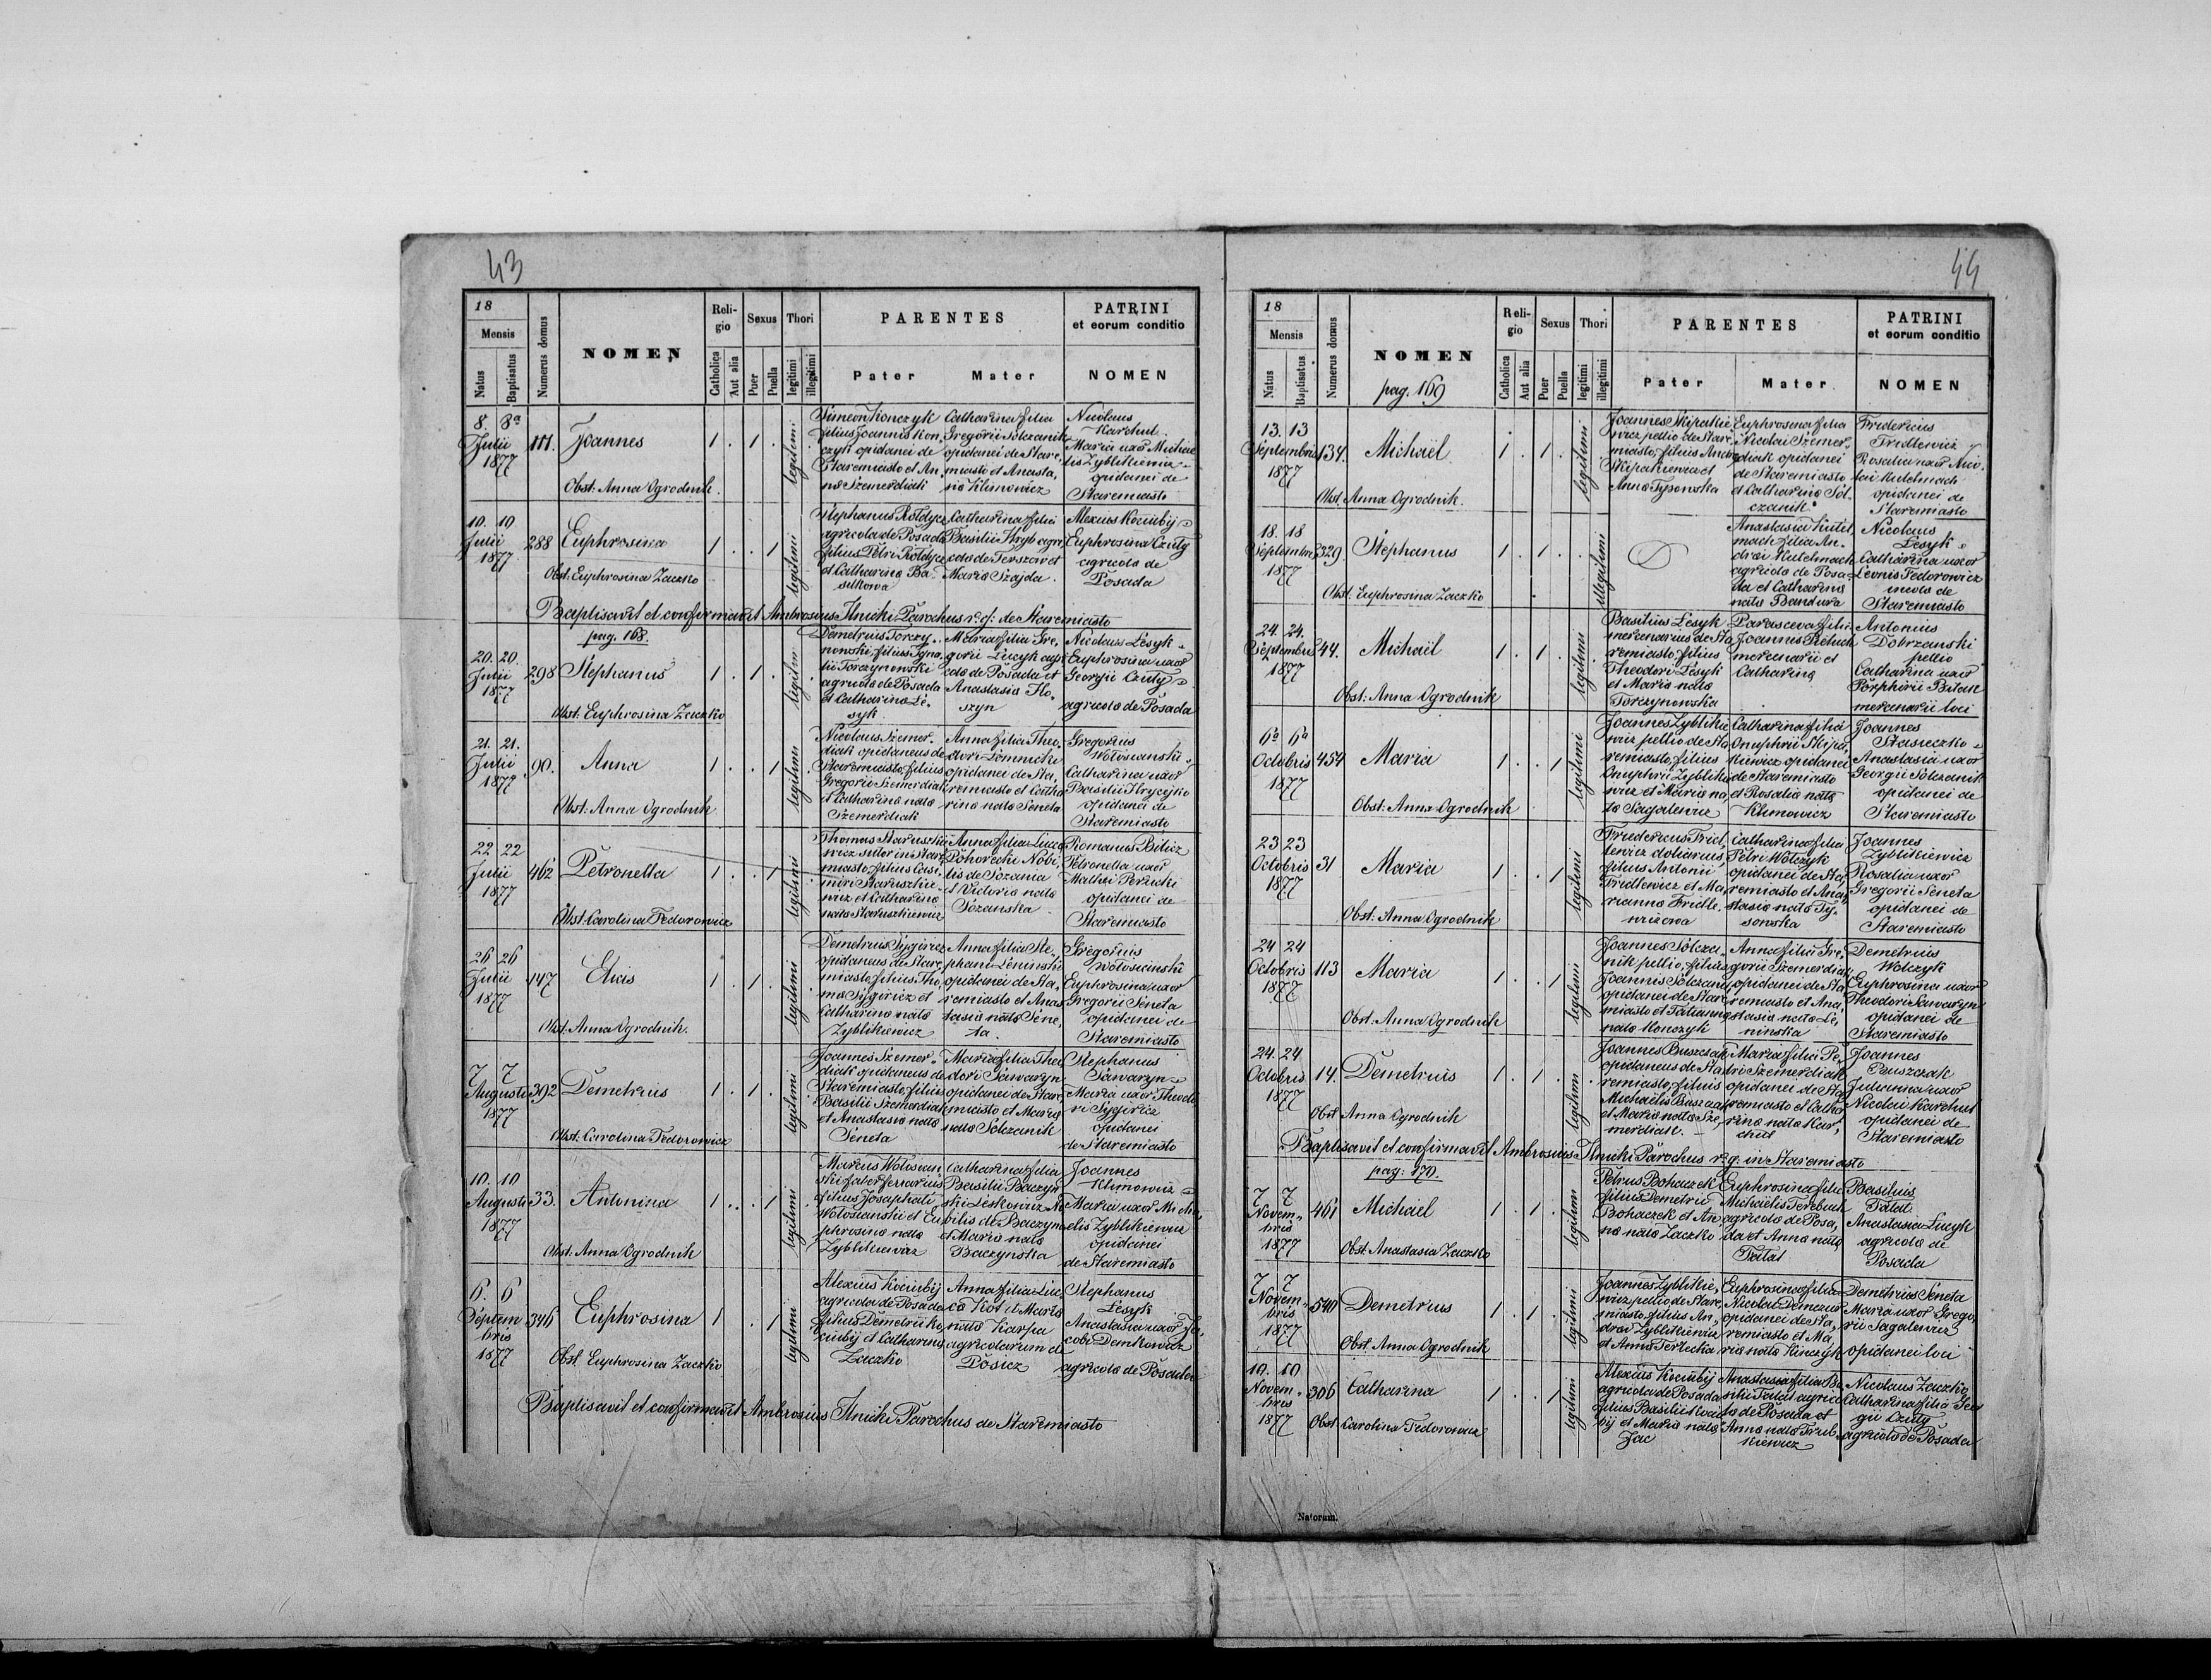 43
18
Mensis
Natus
Baptisatus
Numerus domus
NOMEN
Reli-
gio
Catholica
Aut alia
Sexus
Puer
Puella
Thori
legitimi
illegitimi
PARENTES
Pater
Mater
PATRINI
et eorum conditio
NOMEN
8. 8a
Julii
1877
111.
Joannes
Obst. Anna Ogrodnik.
1 . 1 .
legitimi
Simeon Konczyk
filius Joannis Kon,
czyk opidanei de
Staremiasto et An,
na Szemerdiak
Catharina filia
Gregorii Solczanik
opidanei de Stare,
miasto et Anasta,
sia Klimowicz
Nicolaus
Karchut
Maria uxor Michae
lis Zyblikiewicz
opidanei de
Staremiasto
10. 10
Julii
1877
288
Euphrosina
Obst. Euphrosina Zaczko
1 . . 1
legitimi
Stephanus Roldycz
agricola de Posada
filius Petri Roldycz
et Catharina Ba-
silkowa
Catharina filia
Basilii Hryb agri,
cola de Terszow et
Maria Szajda.
Alexius Kociubij
Euphrosina Czuly
agricola de
Posada
Baptisavit et confirmavit Ambrosius Ilnicki Parochus r. g. de Staremiasto
pag. 168.
20. 20.
Julii
1877
298
Stephanus
Obst. Euphrosina Zaczko
1 . 1 .
legitim
Demetrius Torczy,
nowski, filius Igna,
tii Torczynowski
agricola de Posada
et Catharina Le,
syk
Maria filia Gre,
gorii Lucyk agri
cola de Posada et
Anastasia Ho,
szyn
Nicolaus Lesyk
Euphrosina uxor
Georgii Czuly
agricola de Posada
21. 21.
Julii
1877
90.
Anna
Obst: Anna Ogrodnik
1 . . 1
legitimi
Nicolaus Szemer,
diak opidaneus de
Staremiasto, filius
Gregorii Szemerdiak
et Catharina nata
Szemerdiak
Anna filia Theo,
dori Lomnicki
opidanei de Sta,
remiasto et Catha
rina nata Seneta
Gregorius
Wolosianski
Catharina uxor
Basilii Hrycyko
opidanei de
Staremiasto
22 22
Julii
1877
462
Petronella
Obst. Carolina Fedorowicz
1 . . 1
legitimi
Thomas Staruszkie
wicz sutor in Stare
miasto, filius Casi,
miri Staruszkie,
wicz et Catharina
nata Staruszkiewicz
Anna filia Luca
Pohorecki Nobi,
lis de Sozania
et Victoria nata
Sozanska
Romanus Bilicz
Petronella uxor
Mathei Perucki
opidanei de
Staremiasto
26 26
Julii
1877
447
Elias
Obst. Anna Ogrodnik.
1 . 1 .
legitimi
Demetrius Sygiricz
opidaneus de Stare
miasto, filius Tho,
ma Sygiricz et
Catharina nata
Zyblikiewicz
Anna filia Ste,
phani Leninski
opidanei de Sta,
remiasto et Anas
tasia nata Sene,
ta.
Gregorius
Wolosianski
Euphrosina uxor
Gregorii Seneta
opidanei de
Staremiasto
7 7
Augusti
1877
392
Demetrius
Obst. Carolina Fedorowicz
1 . 1 .
legitimi
Joannes Szemer,
diak opidaneus de
Staremiasto, filius
Basilii Szemerdiak
et Anastasia nata
Seneta
Maria filia Theo
dori Sawaryn
opidanei de Stare,
miasto et Maria
nata Solczanik
Stephanus
Sawaryn
Maria uxor Theodo
ri Sygiricz
opidanei
de Staremiasto
10. 10
Augusti
1877
33.
Antonina
Obst. Anna Ogrodnik
1 . . 1
legitimi
Marcus Wolosian,
ski faber ferrarius
filius Josaphati
Wolosianski et Eu
phrosina nata
Zyblikiewicz
Catharina filia
Basilii Baczyn
ski Leskowicz No
bilis de Baczyna
et Maria nata
Baczynska
Joannes
Klimowicz
Maria uxor Micha
elis Zyblikiewicz
opidanei
de Staremiasto
6. 6
Septem
bris
1877
346
Euphrosina
Obst. Euphrosina Zaczko
1 . 1
legitimi
Alexius Kociubij
agricola de Posada
filius Demetrii Ko,
ciubij et Catharina
Zaczko
Anna filia Luc,
ca Kot et Maria
nata Karpa
agricolarum de
Posicz
Stephanus
Lesyk
Anastasia uxor Ja,
cobi Demkowicz
agricola de Posada
Baptisavit et confirmavit Ambrosius Ilnicki Parochus de Staremiasto
44
18
Mensis
Natus
Baptisatus
Numerus domus
NOMEN
pag. 169
Reli-
gio
Catholica
Aut alia
Sexus
Puer
Puella
Thori
legitimi
illegitimi
PARENTES
Pater
Mater
PATRINI
et eorum conditio
NOMEN
13. 13
Septembris
1877
134.
Michaël
Obst. Anna Ogrodnik.
1 . 1 .
legitimi
Joannes Skipakie
wicz pellio de Stare,
miasto, filius Andrea
Skipakiewicz et
Anna Tysowska
Euphrosina filia
Nicolai Szemer,
diak opidanei
de Staremiasto
et Catharina Sol-
czanik
Fridericus
Fridlewicz
Rosalia uxor Nico,
lai Kulchnach
opidanei de
Staremiasto
18. 18
Septembris
1877
329.
Stephanus
Obst. Euphrosina Zaczko
1 . 1 .
illegitimi
Anastasia Kulch,
mach filia An,
drei Kulchmach
agricola de Posa,
da et Catharina
nata Bandura
Nicolaus
Lesyk
Catharina uxor
Leonis Fedorowicz
incola de
Staremiasto
24. 24.
Septembris
1877
44.
Michaël
Obst. Anna Ogrodnik
1 . 1 .
legitimi
Basilius Lesyk
mercenarius de Sta
remiasto, filius
Theodori Lesyk
et Maria nata
Torczynowska
Parasceva filia
Joannis
mercenarii et
Catharina
Antonius
Dobrzanski
pellio
Catharina uxor
Porphirii Bitan
mercenarii loci
6a 6a
Octobris
1877
454
Maria
Obst. Anna Ogrodnik
1 . . 1
legitimi
Joannes Zyblikie
wicz pellio de Sta
remiasto, filius
Onuphrii Zyblikie
wicz et Maria na,
ta Sagalewicz
Catharina filia
Onuphrii Skipa,
kiewicz opidanei
de Staremiasto
et Rosalia nata
Klimowicz
Joannes
Stasieczko
Anastasia uxor
Georgii Solczanik
opidanei de
Staremiasto
23 23
Octobris
1877
31
Maria
Obst. Anna Ogrodnik
1 . . 1
legitimi
Fridericus Frid,
lewicz doliarius,
filius Antonii
Fridlewicz et Ma,
rianna Fridle,
wiczowa
Catharina filia
Petri Wolczyk
opidanei de Sta,
remiasto et Anas
tasia nata Ty,
sowska
Joannes
Zyblikiewicz
Rosalia uxor
Gregorii Seneta
opidanei de
Staremiasto
24 24
Octobris
1877
113
Maria
Obst. Anna Ogrodnik
1 . . 1
legitimi
Joannes Solcza,
nik pellio, filius
Joannis Solczanik
opidanei de Stare,
miasto et Tatianna
nata Konczyk
Anna filia Gre,
gorii Szemerdiak
opidanei de Sta
remiasto et Ana,
stasia nata Le,
ninska
Demetrius
Wolczyk
Euphrosina uxor
Theodori Sawaryn
opidanei de
Staremiasto
24 24
Octobris
1877
14.
Demetrius
Obst Anna Ogrodnik
1 . 1 .
legitimi
Joannes Buszczak
opidaneus de Sta
remiasto, filius
Michaelis Buszczak
et Maria nata Sze,
merdiak.
Maria filia Pe,
tri Szemerdiak
opidanei de Sta
remiasto et Catha
rina nata Kar,
chut
Joannes
Puszczak
Julianna uxor
Nicolai Karchut
opidanei de
Staremiasto
Baptisavit et confirmavit Ambrosius Ilnicki Parochus r. g. in Staremiasto
pag: 170.
7 7
Novem,
bris
1877
461
Michaël
Obst. Anastasia Zaczko
1 . 1 .
legitimi
Petrus Bohaczek
filius Demetrii
Bohaczek et An,
na nata Zaczko
Euphrosina filia
Michaelis Terebuch
agricola de Posa,
da et Anna nata
Tatat
Basilius
Tatat
Anastasia Lucyk
agricola de
Posada
7 7
Novem,
bris
1877
540
Demetrius
Obst. Anna Ogrodnik
1 . 1 .
legitimi
Joannes Zyblikie,
wicz pellio de Stare,
miasto, filius An,
drea Zyblikiewicz
et Anna Terlecka
Euphrosina filia
Nicolai Demczur
opidanei de Sta,
remiasto et Ma,
ria nata Kinczyk
Demetrius Seneta
Maria uxor Grego,
rii Sagalewicz
opidanei loci
10. 10
Novem,
bris
1877
306
Catharina
Obst. Carolina Fedorowicz
1 . . 1
legitimi
Alexius Kociubij
agricola de Posada
filius Basilii Kociu
bij et Maria nata
Jac
Anastasia filia Ba
silii Tatat agrico
la de Posada et
Anna nata Frid,
kiewicz
Nicolaus Zaczko
Catharina filia Geor
gii Czuly
agricola de Posada
Natorum.